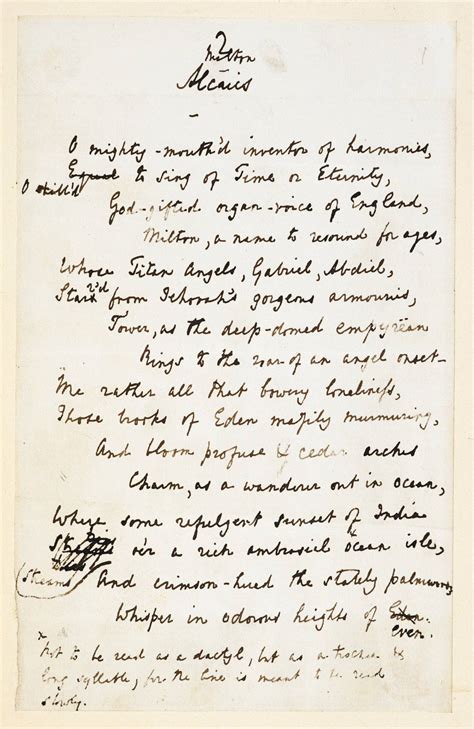 2
Milton
Alcaics
O mighty-mouth'd inventor of harmonies,
O skill'd Equal to sing of Time or Eternity,
God-gifted organ-voice of England,
Milton, a name to resound for ages,
Whose Titan Angels, Gabriel, Abdiel,
Starr'd from Jehovah's gorgeous armouries,
Tower, as the deep-domed empyrëan
Rings to the roar of an angel onset—
Me rather all that bowery loneliness,
Those brooks of Eden mazily murmuring,
And bloom profuse & cedar arches
Charm, as a wanderer out in ocean,
Where some refulgent sunset of India
o'er a rich ambrosial ocean isle,
Streams And crimson-hued the stately palmwoods
Whisper in odorous heights of Eden.
even.
x Not to be read as a dactyl, but as a trochee &
long syllable, for the line is meant to be read
slowly.